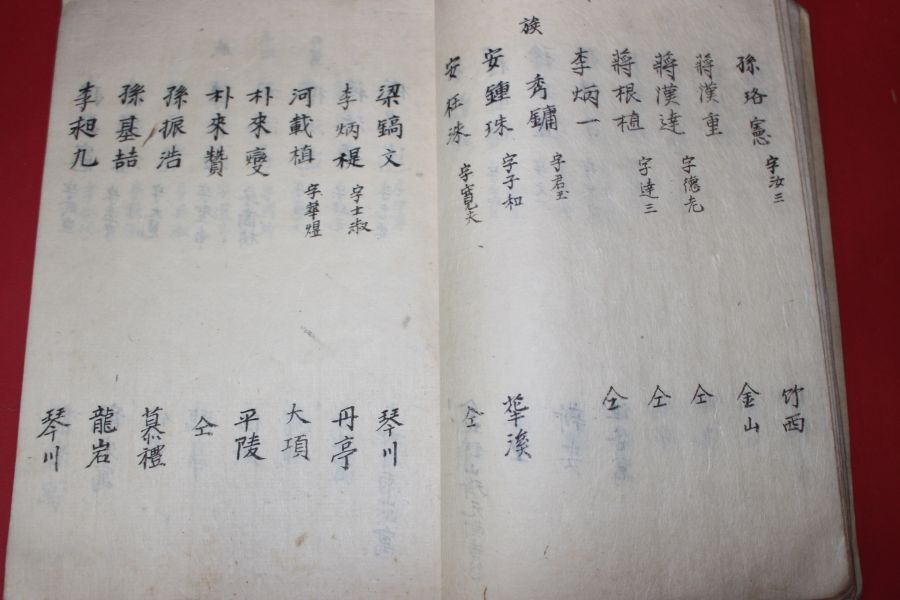 孫珞憲 字汝三 竹西
蔣漢重 字德允 金山
蔣漢達 字達三 仝
蔣根植 仝
李炳一 仝
族 秀鏞 字君玉
安鍾珠 字子和 華溪
安廷洙 字寬夫 仝
梁鎬文 琴川
李炳禔 字士淑 丹亭
河載植 字華煜 大項
朴來燮 平陵
朴來贊 仝
孫振浩 慕禮
孫基喆 龍岩
李昶九 琴川